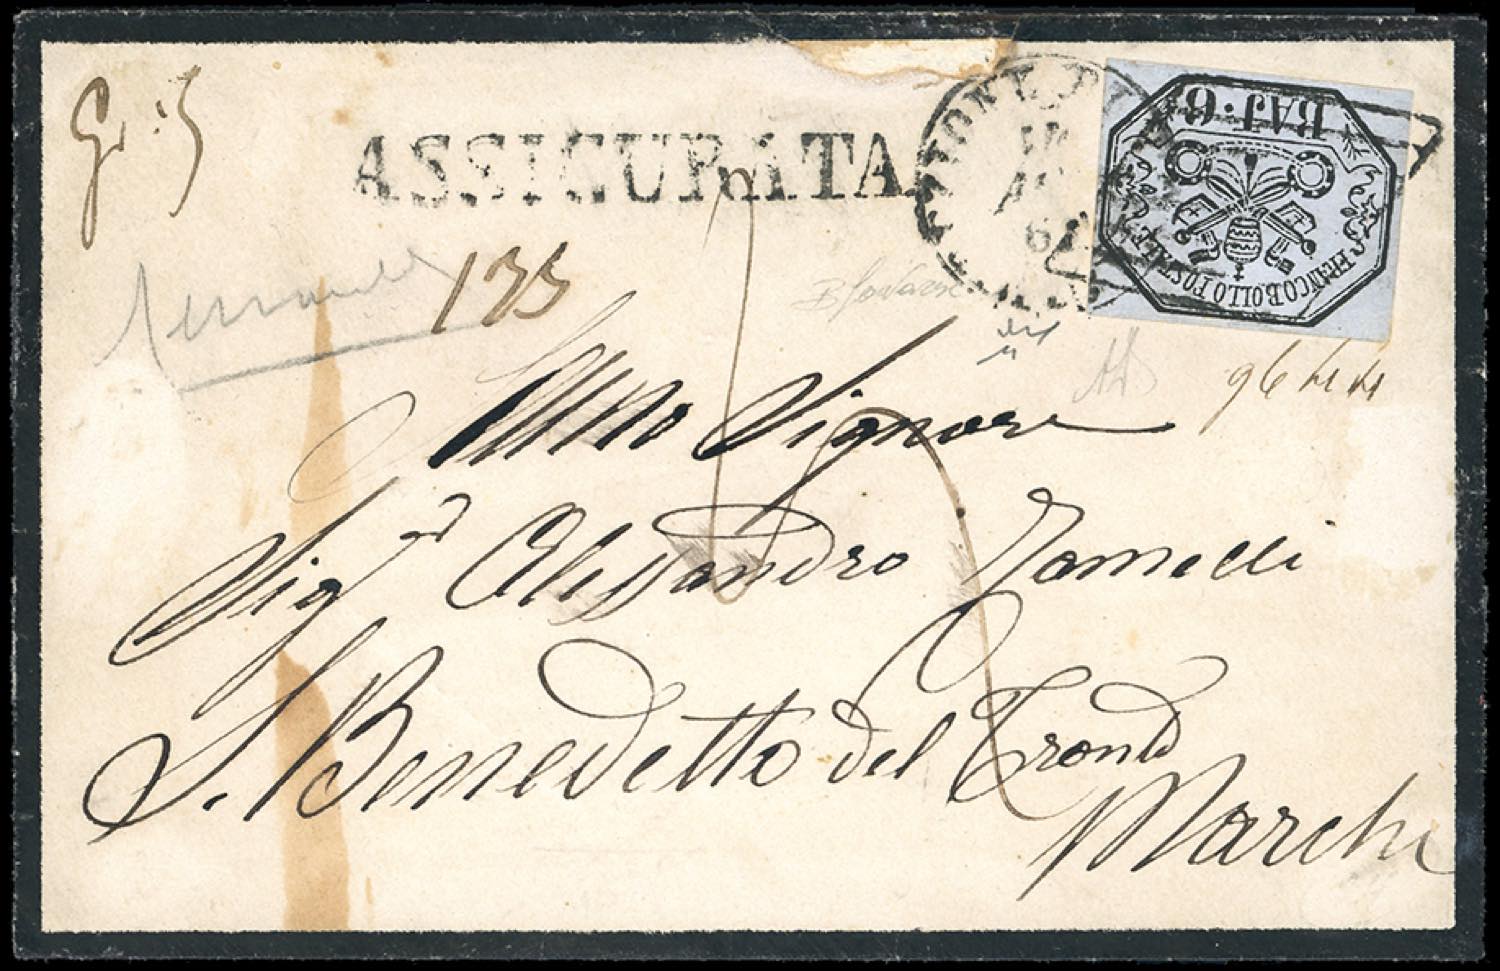 Gr: 5
ASSICURATA
BAJ·6
FRANCO BOLLO POSTALE
61
135
96
Illmo Signore
Sigr Alessandro
S. Benedetto del Tronto
Marche